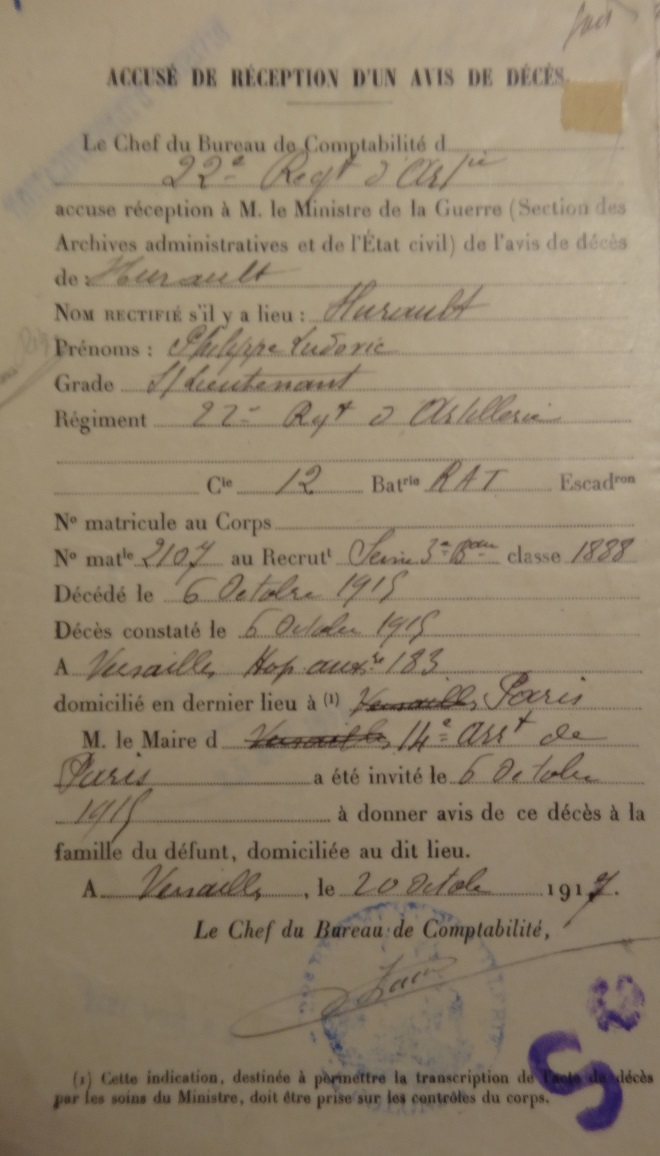 ACCUSÉ DE RÉCEPTION D'UN AVIS DE DÉCÈS
Le Chef du Bureau de Comptabilité d
22e Regt d'Artie
accuse réception à M. le Ministre de la Guerre (Section des
Archives administratives et de l'État civil) de l'avis de décès
de : Hurault
NOM RECTIFIÉ s'il y a lieu : Hurault
Prénoms : Philippe Ludovic
Grade S/Lieutenant
Régiment 22e Regt d'Artillerie
Cie 12 Batrie RAT Escadron
No matricule au Corps
No matle 2107 au Recrutt Seine 3e Bau classe 1888
Décédé le 6 Octobre 1915
Décès constaté le 6 Octobre 1915
A Versailles Hop auxre 183
domicilié en dernier lieu à (1) Versailles Paris
M. le Maire d Versailles 14e Arrt de
Paris a été invité le 6 Octobre
1915 à donner avis de ce décès à la
famille du défunt, domiciliée au dit lieu.
A Versailles, le 20 Octobre 1917.
Le Chef du Bureau de Comptabilité,
(1) Cette indication, destinée à permettre la transcription de l'acte de décès
par les soins du Ministre, doit être prise sur les contrôles du corps.